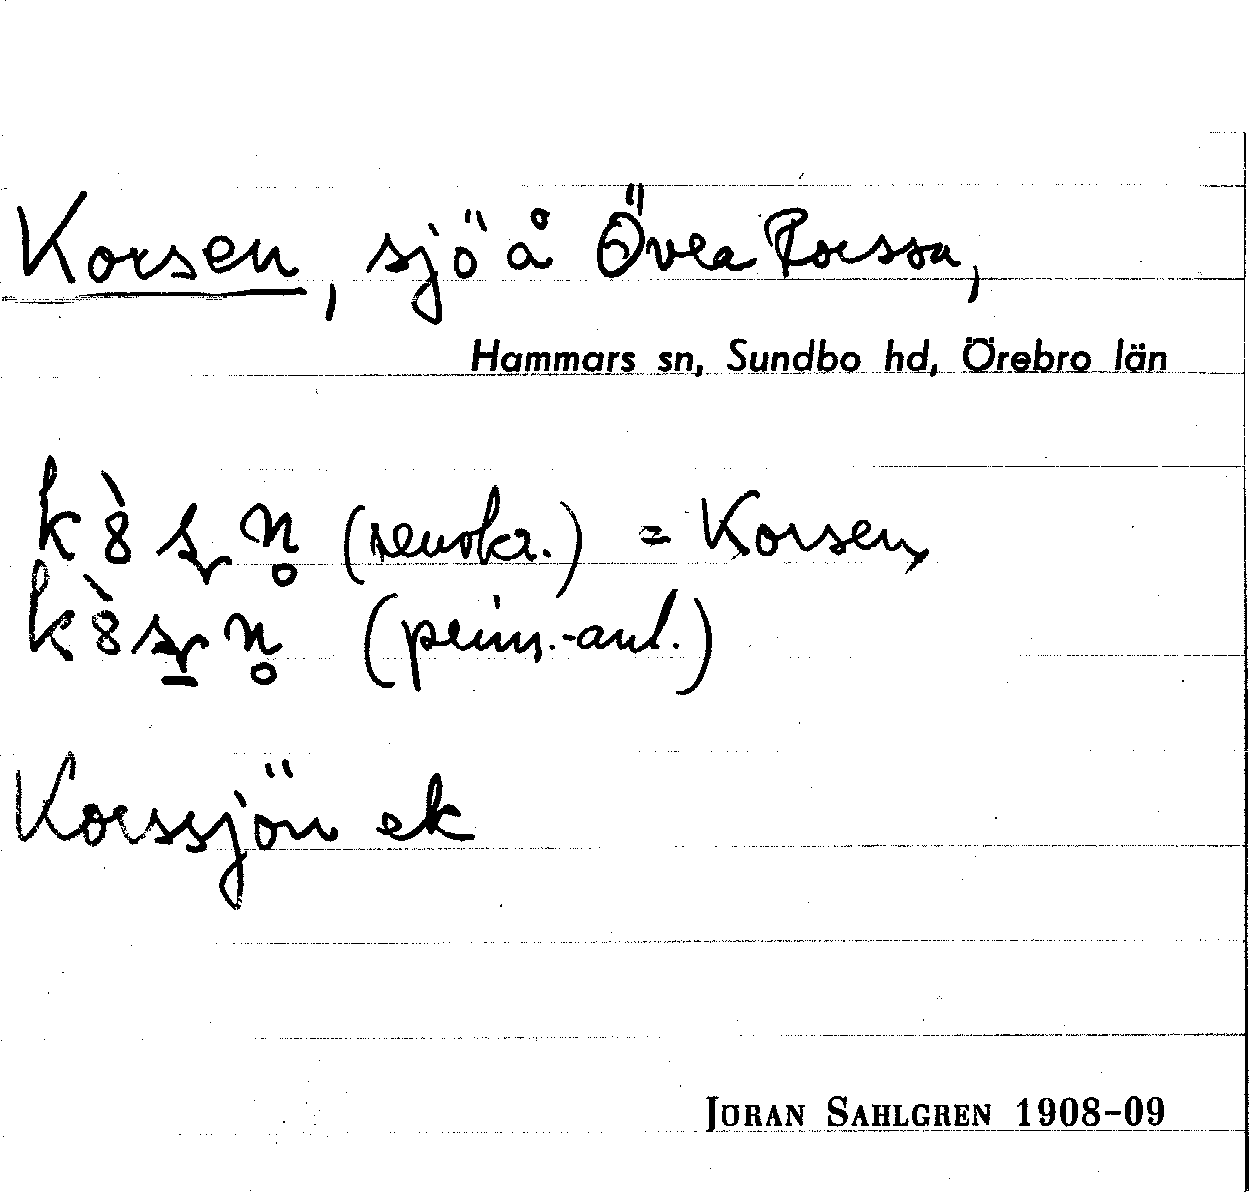 Korsen, sjö å Övra Forssa,
Hammars sn, Sundbo hd, Örebro län
(renskr.) = Korsen
(prim.-ant.)
Korssjön ek
JÖRAN SAHLGREN 1908-09